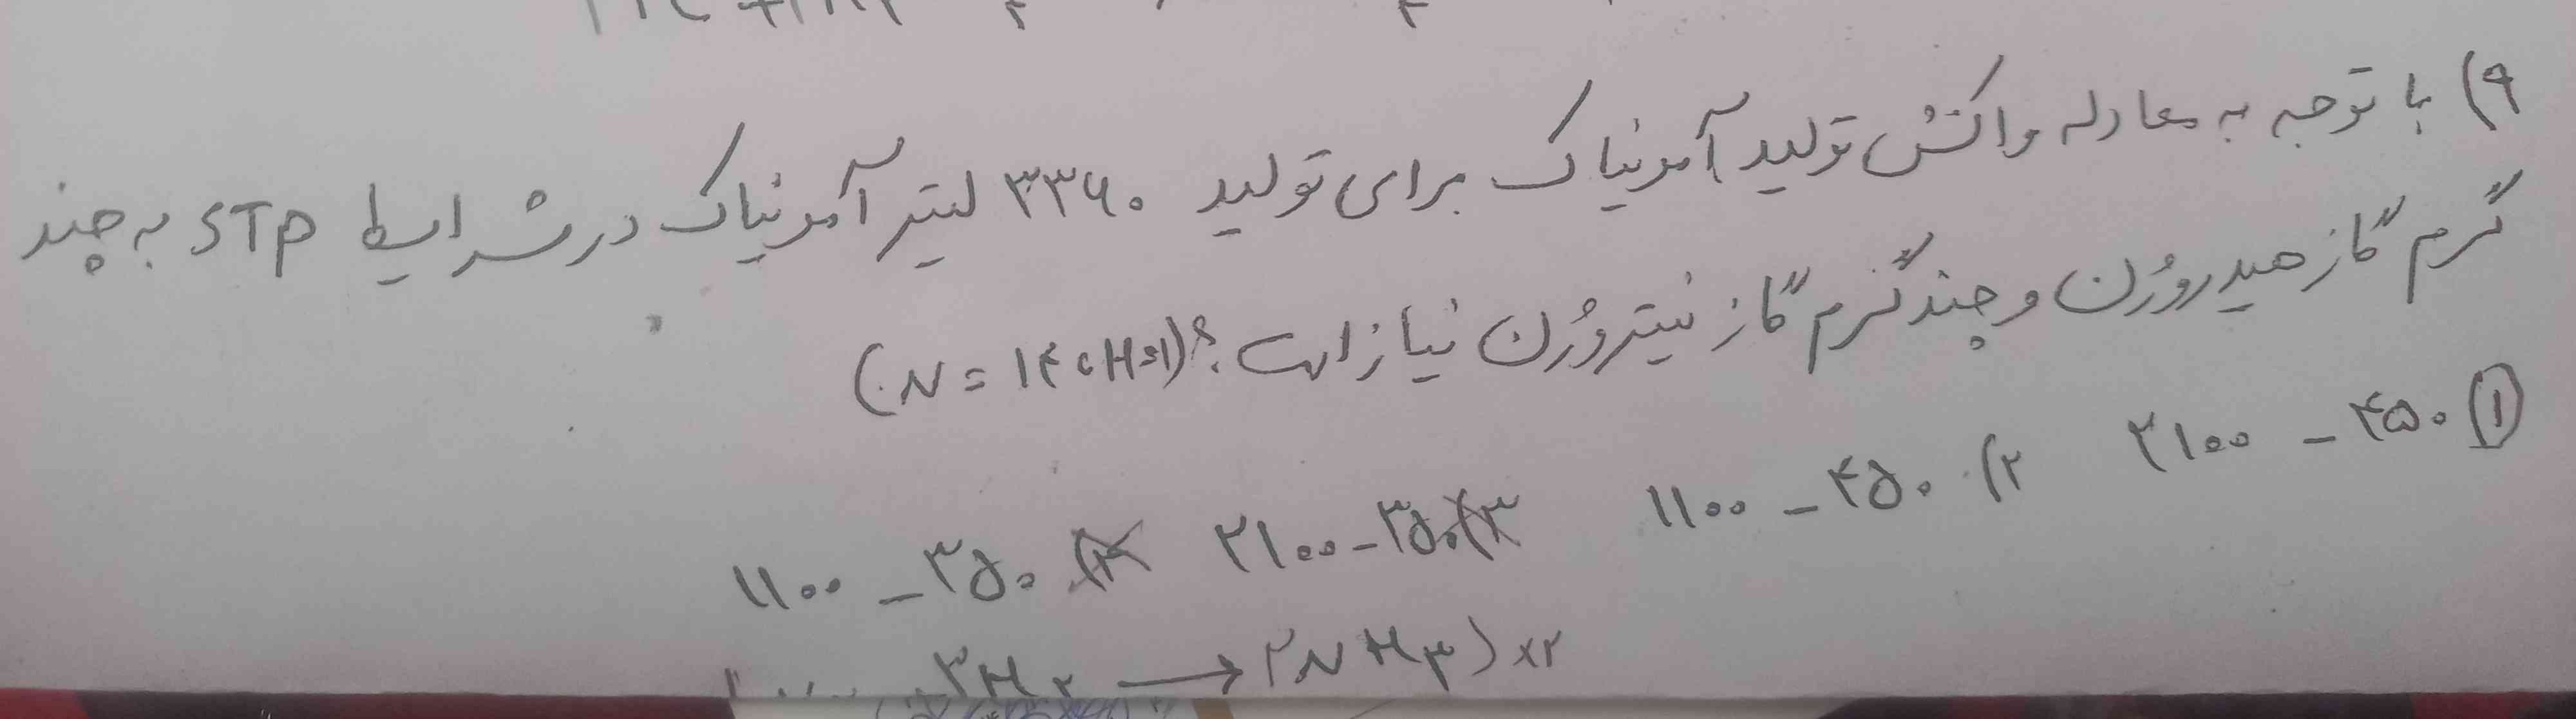 ۹) با توجه به معادله واکنش تولید آمونیاک برای تولید ۳۳۶۰ لیتر آمونیاک در شرایط STP به چند
گرم گاز هیدروژن و چند گرم گاز نیتروژن نیاز است؟ (N = ۱۴ ، H=۱)
۱) ۴۵۰ - ۲۱۰۰ ۲) ۴۵۰ - ۱۱۰۰
۳) ۳۵۰ - ۲۱۰۰ ۴) ۳۵۰ - ۱۱۰۰
۳H۲ → ۲NH۳) ×۲